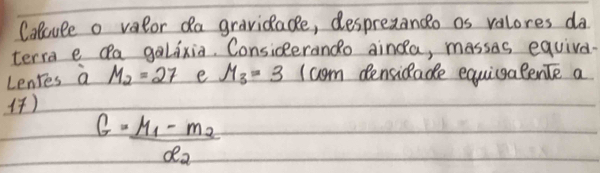 Calcule o valor da gravidade, desprezando os valores da
terra e da galáxia. Considerando ainda, massas equiva-
lentes à M₂=27 e M₃=3 (com densidade equivalente a
17)
G = M₁ - m₂
d₂